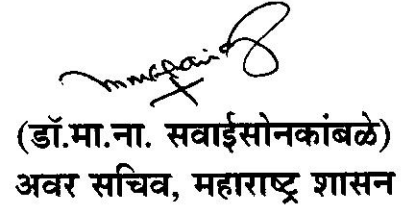 (डॉ.मा.ना. सवाईसोनकांबळे)
अवर सचिव, महाराष्ट्र शासन